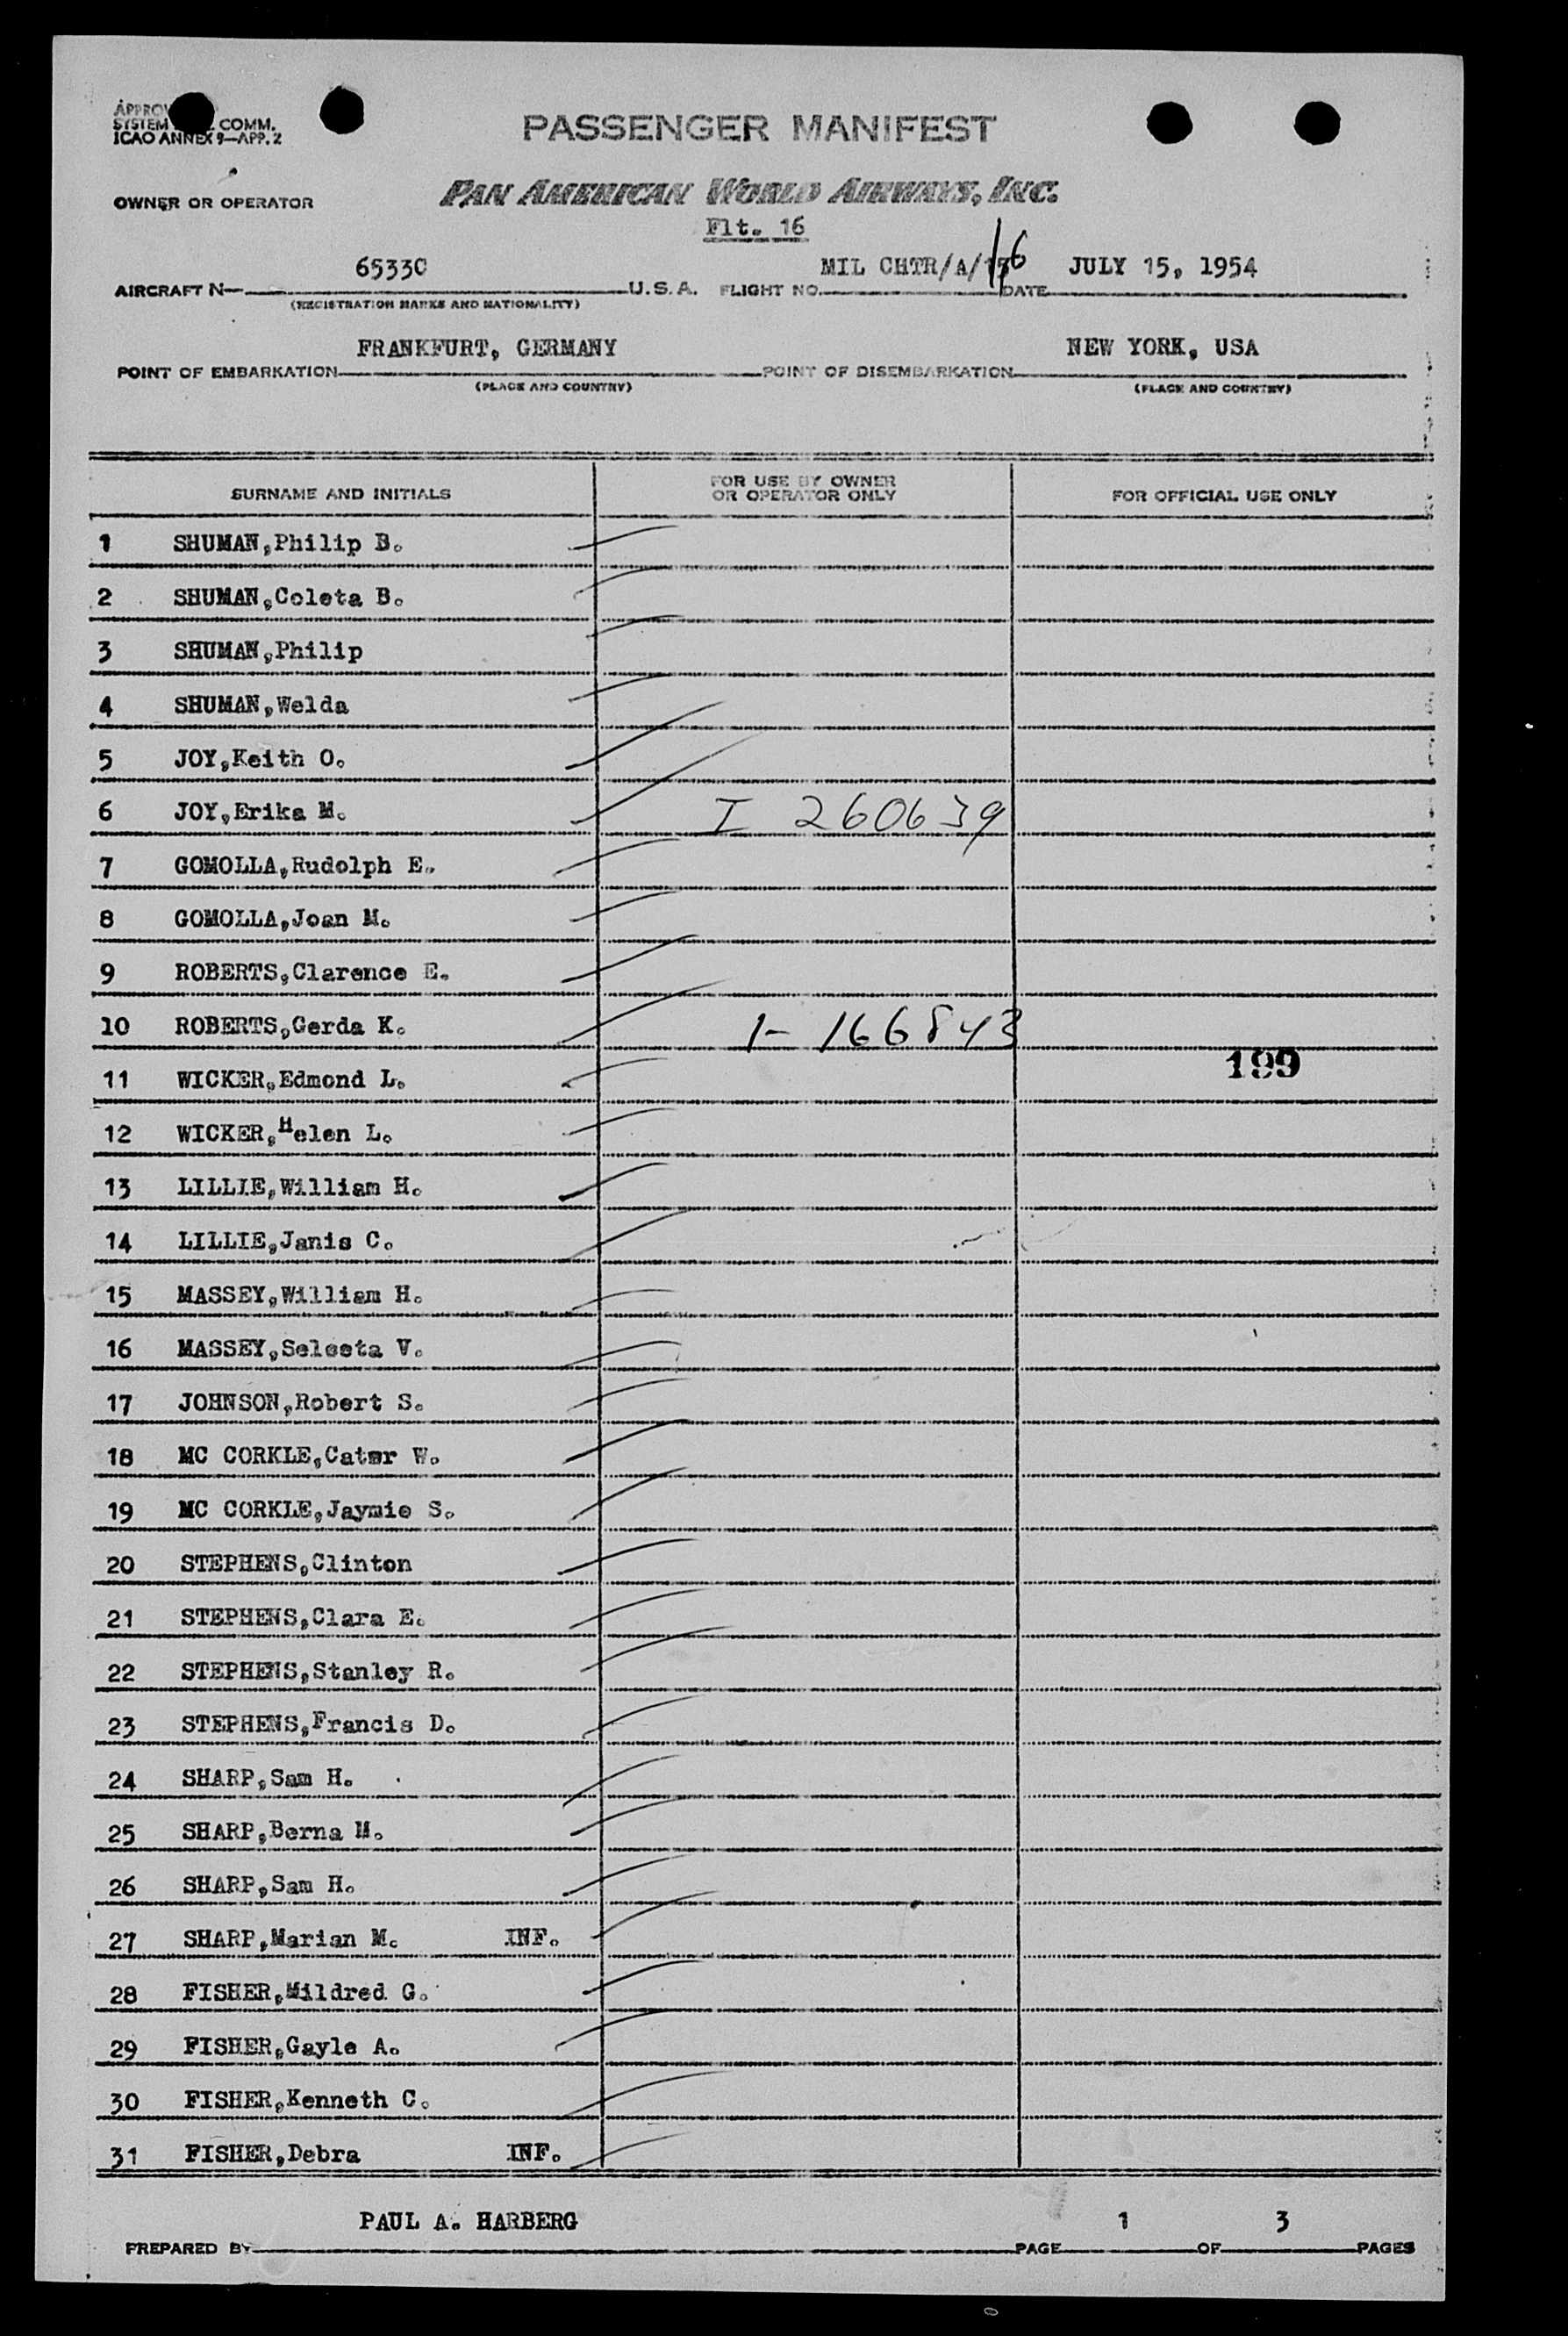 APPROV
SYSTEM COMM.
ICAO ANNEX 9—APP. 2
PASSENGER MANIFEST
OWNER OR OPERATOR PAN AMERICAN WORLD AIRWAYS, INC.
Flt. 16
AIRCRAFT N— 65330 U.S.A. FLIGHT NO. MIL CHTR/A/16 DATE JULY 15, 1954
(REGISTRATION MARKS AND NATIONALITY)
POINT OF EMBARKATION FRANKFURT, GERMANY POINT OF DISEMBARKATION NEW YORK, USA
(PLACE AND COUNTRY) (PLACE AND COUNTRY)
SURNAME AND INITIALS FOR USE BY OWNER OR OPERATOR ONLY FOR OFFICIAL USE ONLY
1 SHUMAN,Philip B.
2 SHUMAN,Coleta B.
3 SHUMAN,Philip
4 SHUMAN,Welda
5 JOY,Keith O.
6 JOY,Erika M. I 260639
7 GOMOLLA,Rudolph E.
8 GOMOLLA,Joan M.
9 ROBERTS,Clarence E.
10 ROBERTS,Gerda K. 1- 166843
199
11 WICKER,Edmond L.
12 WICKER,Helen L.
13 LILLIE,William H.
14 LILLIE,Janis C.
15 MASSEY,William H.
16 MASSEY,Seleeta V.
17 JOHNSON,Robert S.
18 MC CORKLE,Cater W.
19 MC CORKLE,Jaymie S.
20 STEPHENS,Clinton
21 STEPHENS,Clara E.
22 STEPHENS,Stanley R.
23 STEPHENS,Francis D.
24 SHARP,Sam H.
25 SHARP,Berna M.
26 SHARP,Sam H.
27 SHARP,Marian M. INF.
28 FISHER,Mildred G.
29 FISHER,Gayle A.
30 FISHER,Kenneth C.
31 FISHER,Debra INF.
PREPARED BY PAUL A. HARBERG PAGE 1 OF 3 PAGES